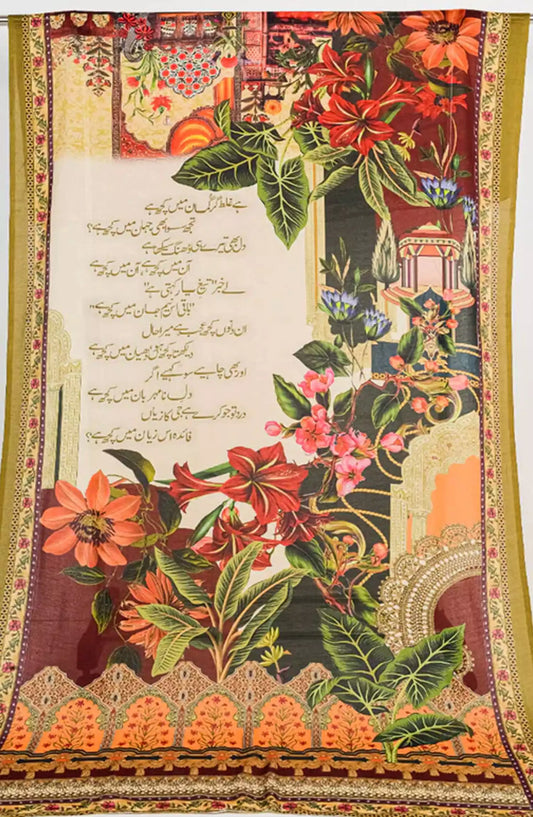 ہے غلط گر گمان میں کچھ ہے
تجھ سوا بھی جہان میں کچھ ہے؟
دل بھی تیرے ہی ڈھنگ سیکھا ہے
آن میں کچھ ہے، آن میں کچھ ہے
لے خبر "تیغ یار کہتی ہے"
"باقی اس نیم جان میں کچھ ہے"
ان دنوں کچھ عجب ہے میرا حال
دیکھتا کچھ ہوں دھیان میں کچھ ہے
اور بھی چاہیے سو کہیے اگر
دل نا مہربان میں کچھ ہے
درد تو جو کرے ہے جی کا زیاں
فائدہ اس زیان میں کچھ ہے؟